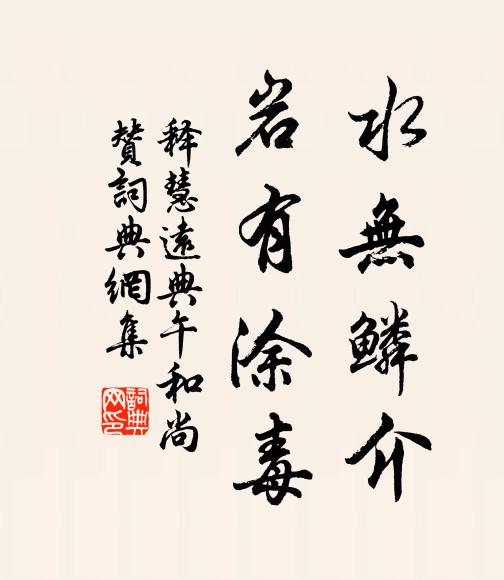 水無鱗介
岩有涂毒
释慧遠典午和尚
贊詞典網集
詞典
网印